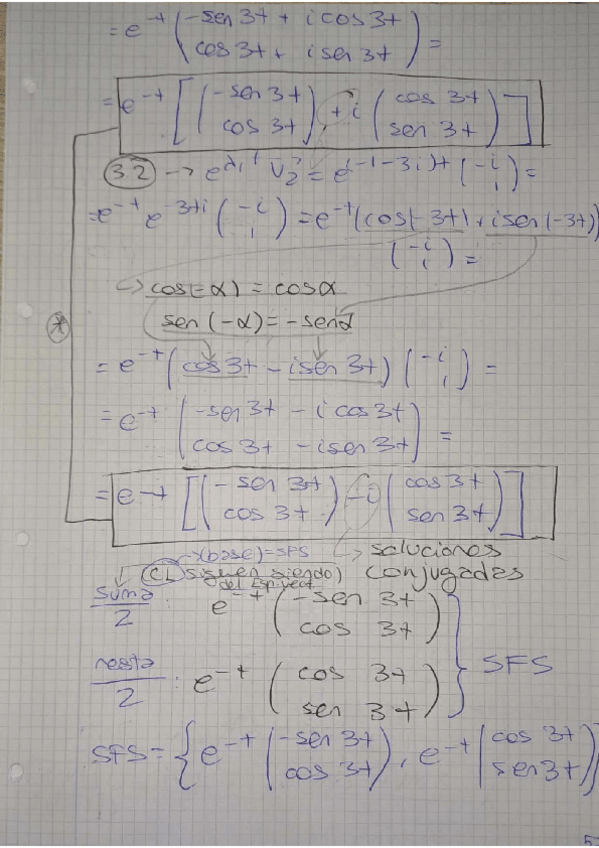 = e^-t (-sen 3t + i cos 3t
cos 3t + i sen 3t) =
= e^-t [(-sen 3t
cos 3t) + i (cos 3t
sen 3t)]
3.2 → e^λ₁t v₂ = e^(-1-3i)t (-i
1) =
= e^-t e^-3ti (-i
1) = e^-t (cos(-3t) + i sen(-3t))
(-i
1) =
↳ cos(-α) = cosα
sen(-α) = -senα
*
= e^-t (cos 3t - i sen 3t) (-i
1) =
= e^-t (-sen 3t - i cos 3t
cos 3t - i sen 3t) =
= e^-t [(-sen 3t
cos 3t) - i (cos 3t
sen 3t)]
→ (base) = SFS ↳ soluciones
(CL siguen siendo) conjugadas
del Esp. vect.
suma/2 : e^-t (-sen 3t
cos 3t)
resta/2 : e^-t (cos 3t
sen 3t) } SFS
SFS = { e^-t (-sen 3t
cos 3t), e^-t (cos 3t
sen 3t)